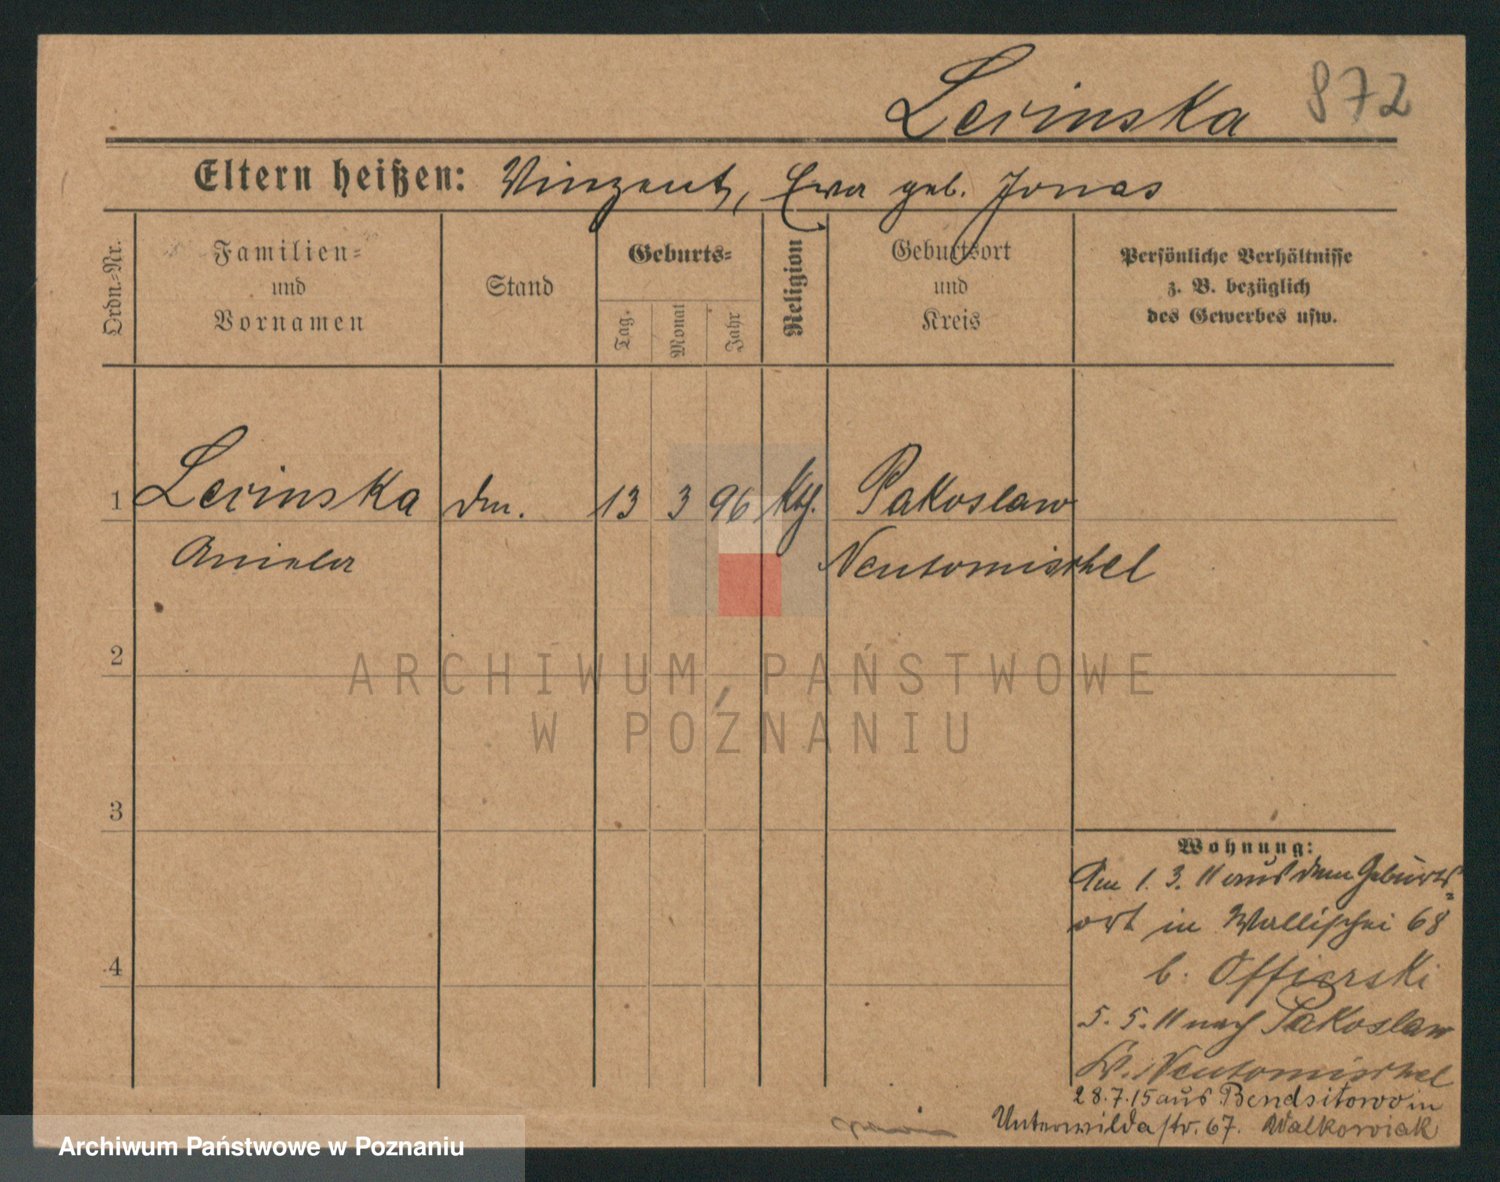 Lerinska 872
Eltern heißen: Vinzent, Ewa geb. Jonas
Ordn.=Nr.
Familien=
und
Vornamen
Stand
Geburts=
Tag.
Monat
Jahr
Religion
Geburtsort
und
Kreis
Persönliche Verhältnisse
z. B. bezüglich
des Gewerbes usw.
1 Lerinska dm. 13 3 96 kth. Pakoslaw
Aniela Neutomischel
2
3
4
Wohnung:
Am 1. 3. 11 aus dem Geburts=
ort in Wallischei 68
b. Offierski
5. 5. 11 nach Pakoslaw
Kr. Neutomischel
28.7.15 aus Bendsitowo in
Unterwilda str. 67. Walkowiak
ARCHIWUM PAŃSTWOWE
W POZNANIU
Archiwum Państwowe w Poznaniu